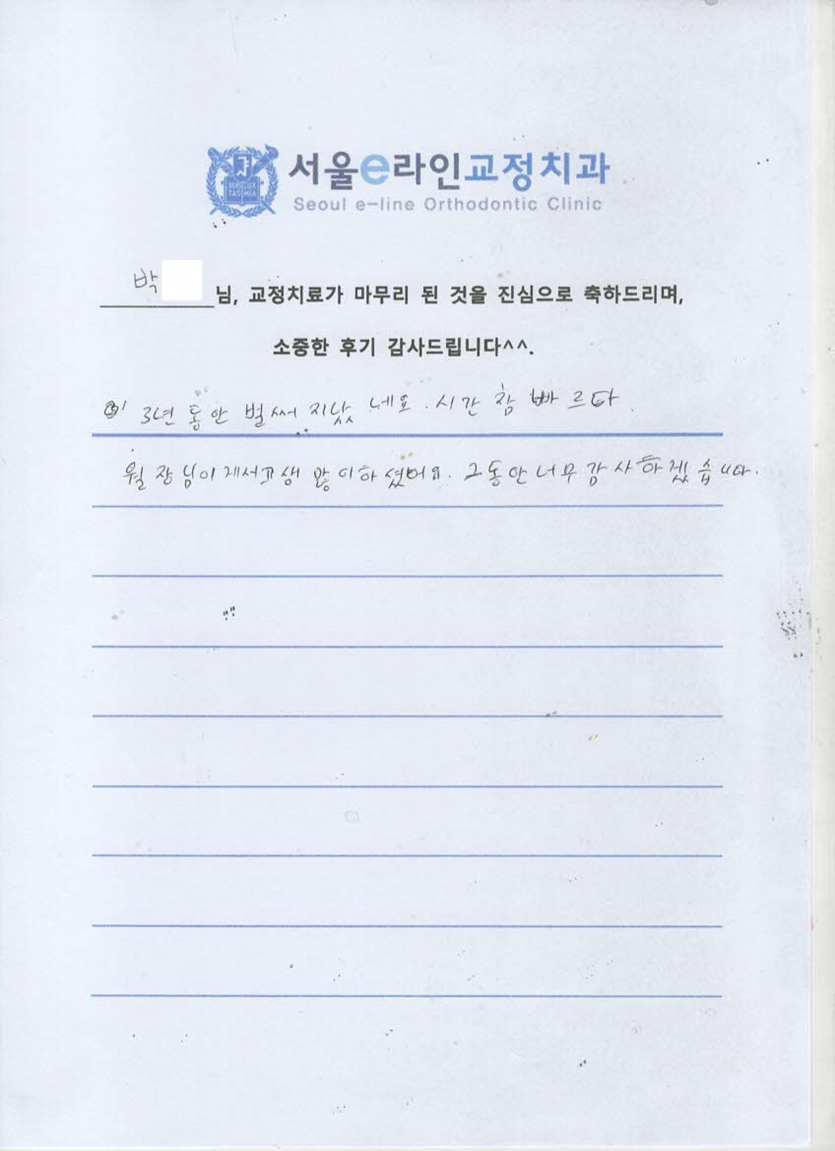 서울e라인교정치과
Seoul e-line Orthodontic Clinic
박 님, 교정치료가 마무리 된 것을 진심으로 축하드리며,
소중한 후기 감사드립니다^^.
3년 동안 벌써 지났네요. 시간 참 빠르다.
원장님이께서고생 많이하셨어요. 그동안너무감사하겠습니다.